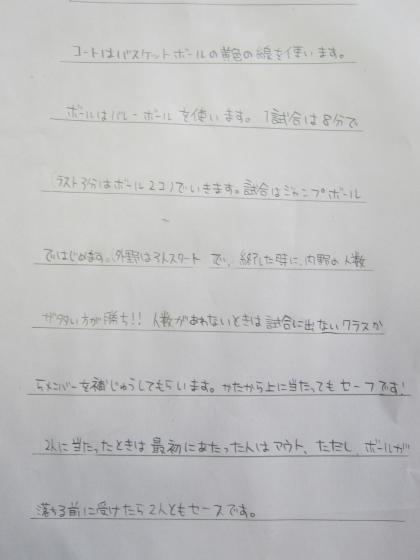 コートはバスケットボールの黄色の線を使います。
ボールはバレーボールを使います。1試合は8分で
ラスト3分はボール2コでいきます。試合はジャンプボール
ではじめます。外野は3人スタートで、終了した時に、内野の人数
が多い方が勝ち!! 人数があわないときは試合に出ないクラスか
らメンバーを補じゅうしてもらいます。かたから上に当たってもセーフです!
2人に当たったときは最初にあたった人はアウト、ただし、ボールが
落ちる前に受けたら2人ともセーフです。